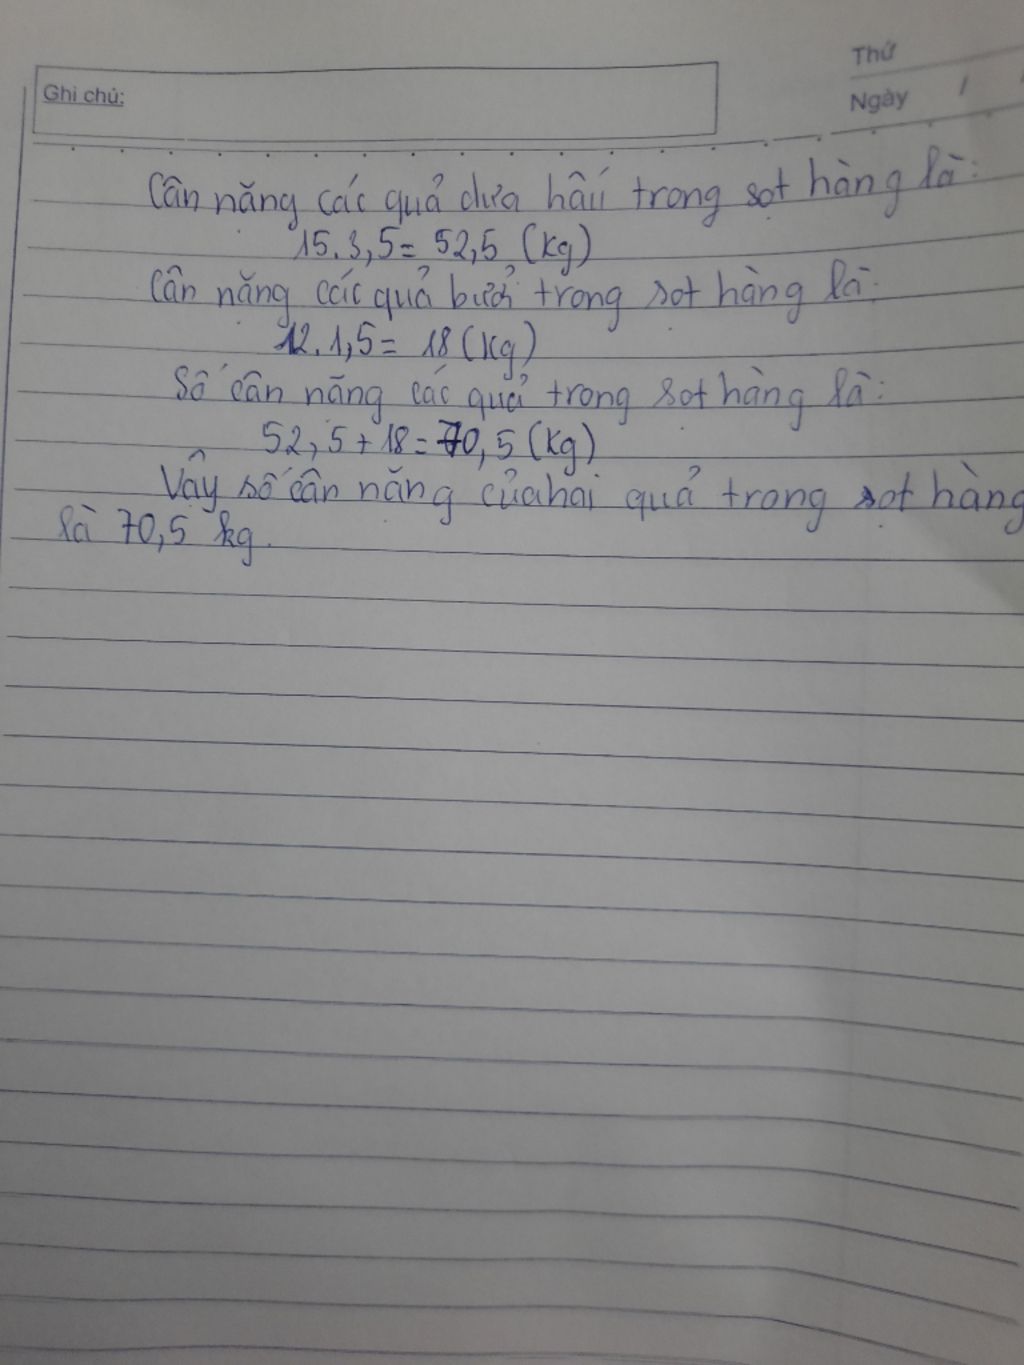 Thứ
Ghi chú:
Ngày /
Cân năng các quả dưa hâú trong sọt hàng là:
15.3,5= 52,5 (kg)
Cân năng các quả bưởi trong sọt hàng là:
12.1,5= 18 (kg)
Số cân năng các quả trong sọt hàng là:
52,5+18=70,5 (kg)
Vây số cân năng của hai quả trong sọt hàng
là 70,5 kg.